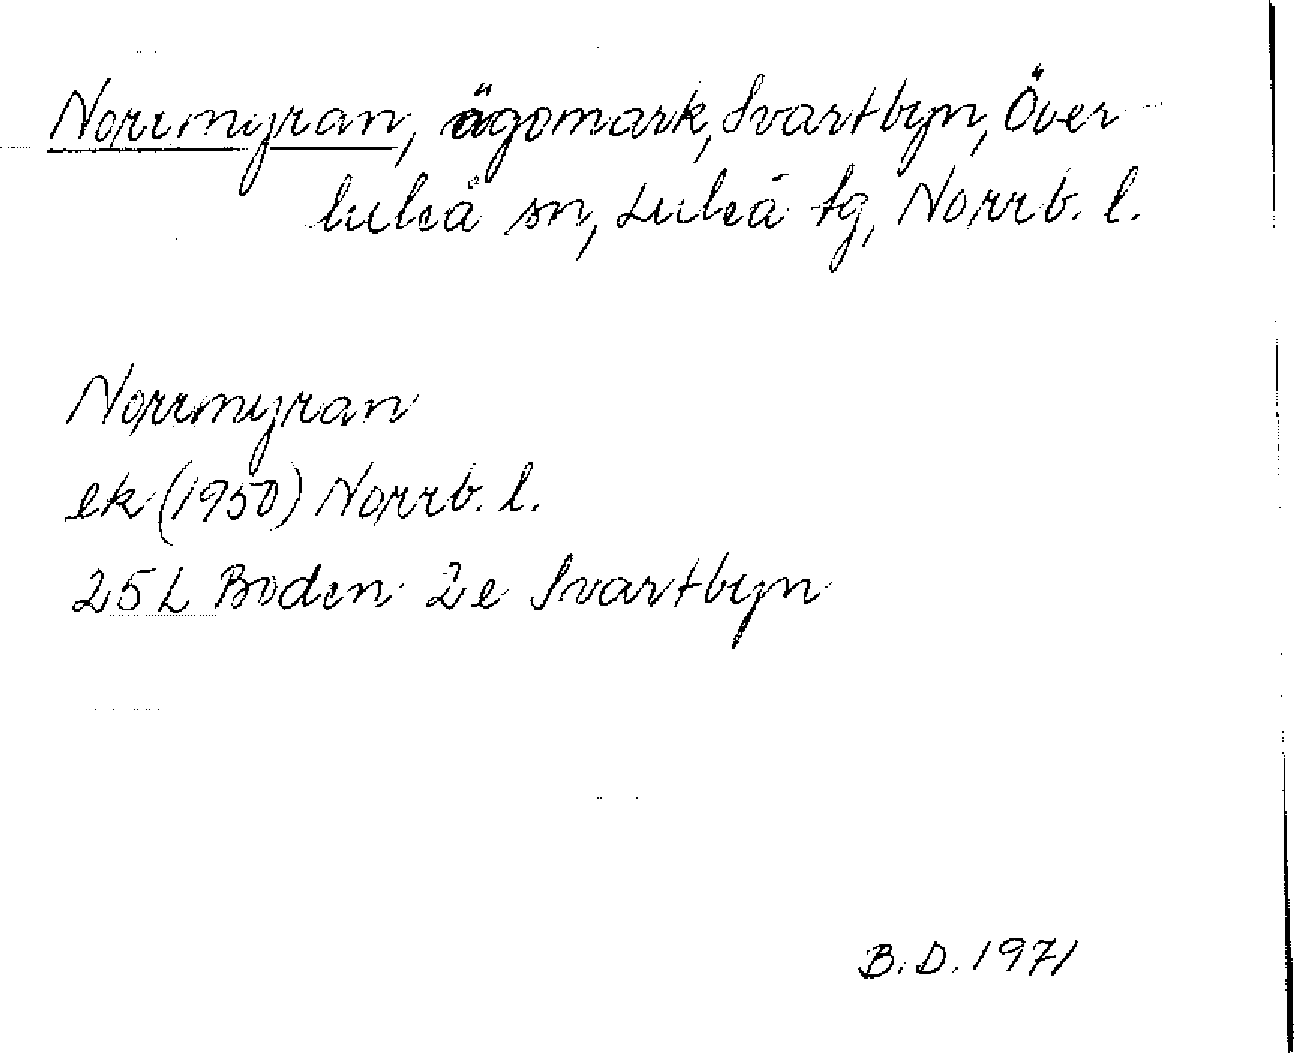 Norrmyran, ägomark, Svartbyn, Över-
luleå sn, Luleå tg, Norrb. l.
Norrmyran
ek (1950) Norrb. l.
25 L Boden 2e Svartbyn
B.D. 1971